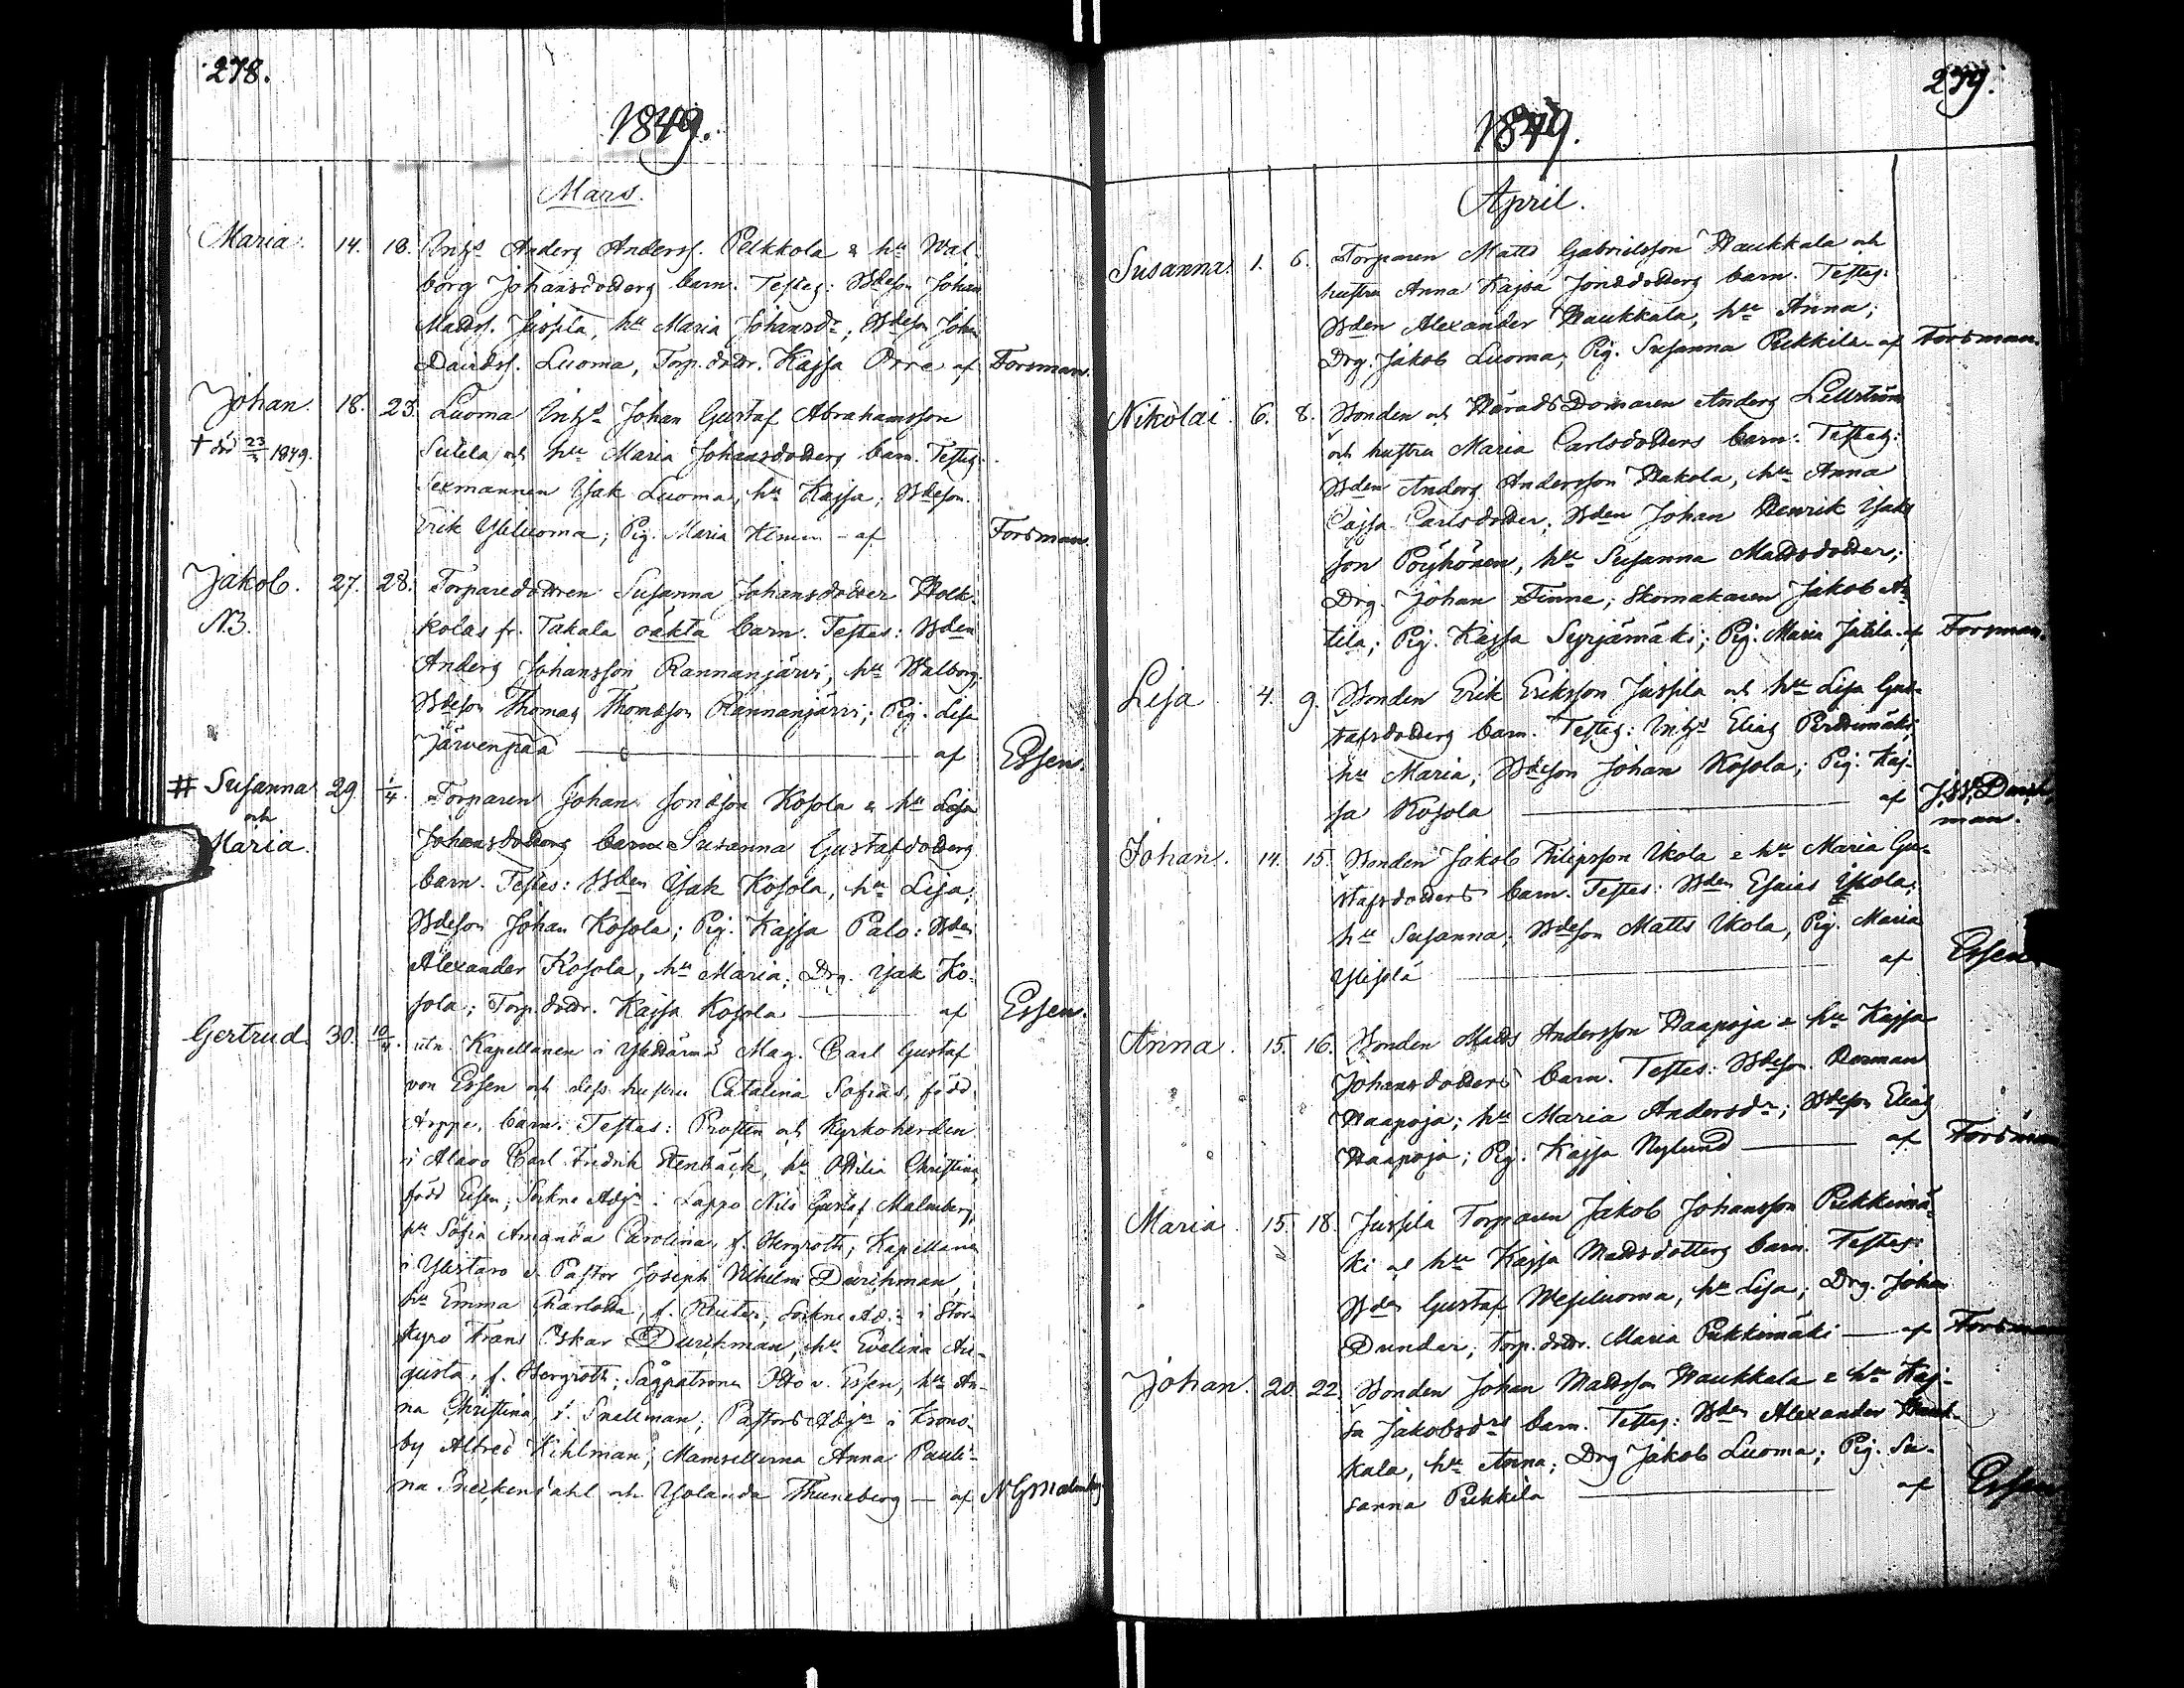 278.
1849.
Mars.
Maria. 14. 18. Inhs Anders Anderss. Pukkola & hu Wal-
borg Johansdotters barn. Testes: Bdeson Johan
Matts. Jussila, hu Maria Johansdr; Bdeson Johan
Davidss. Luoma, Torp. dottr. Kajsa Orre af Forsman.
Johan. 18. 23. Luoma Inhs Johan Gustaf Abrahamsson
† död 23/3 1849. och hu Maria Johansdotters barn. Testes:
Sexmannen Isak Luoma, hu Kajsa; Bdeson
Erik Yliluoma; Pig. Maria - af Forsman.
Jakob. 27. 28. Torparedottren Susanna Johansdotter
NB. kolas fr. Takala oäkta barn. Testes: Bden
Anders Johansson Rannanjärvi, hu Walborg;
Bdeson Thomas Thomasson Rannanjärvi; Pig. Lisa
Järvenpää — af Essen.
# Susanna 29. 1/4. Torparen Johan Jonasson Kosola & hu Lisa
och
Maria. Johansdotters barn Susanna Gustafsdotters
barn. Testes: Bden Isak Kosola, hu Lisa;
Bdeson Johan Kosola; Pig. Kajsa Palo: Bden
Alexander Kosola, hu Maria; Drg. Isak Ko-
sola; Torp. dottr. Kajsa Kosola — af Essen.
Gertrud. 30. 10/4. utn. Kapellanen i Ylihärmä Mag. Carl Gustaf
von Essen och dess hustru Catalina Sofias, född
Arppe, barn. Testes: Prosten och Kyrkoherden
i Alavo Carl Fredrik Stenbäck, hu Ottilia Christina,
född Essen; Sockne Adjn i Lappo Nils Gustaf Malmberg,
hu Sofia Amanda Carolina, f. Hergroth; Kapellanen
i Ylistaro v. Pastor Joseph Wilhelm Durchman,
hu Emma Charlotta, f. Reuter; Sockne Adjn i Stor-
kyro Frans Oskar Durchman, hu Evelina Au-
gusta, f. Hergroth; Sågpatronen Otto v. Essen, hu An-
na Christina, f. Snellman; Pastors Adjn i Krono-
by Alfred Kihlman; Mamsellerna Anna Pauli-
na och Yolanda Thuneberg — af N G Malmberg
279.
1849.
April.
Susanna. 1. 6. Torparen Matts Gabrielsson Haukkala och
hustru Anna Kajsa Jonasdotters barn. Testes:
Bden Alexander Haukkala, hu Anna;
Drg. Jakob Luoma; Pig. Susanna Pukkila af Forsman.
Nikolai. 6. 8. Bonden och HäradsDomaren Anders
och hustru Maria Carlsdotters barn. Testes:
Bden Anders Andersson Hakola, hu Anna
Cajsa Carlsdotter; Bden Johan Henrik Isaks
son Pöyhönen, hu Susanna Mattsdotter;
Drg. Johan Finne; Skomakaren Jakob An-
tila; Pig. Kajsa Syrjämäki; Pig. Maria Jätila af Forsman.
Lisa 4. 9. Bonden Erik Eriksson Jussila och hu Lisa Gus-
tafsdotters barn. Testes: Inhs Elias Perttumäki,
hu Maria; Bdeson Johan Kosola; Pig. Kaj-
sa Kosola — af J. W. Durch-
man.
Johan. 14. 15. Bonden Jakob Filipsson Ikola & hu Maria Gu-
stafsdotters barn. Testes: Bden Esaias Ikola,
hu Susanna; Bdeson Matts Ikola, Pig. Maria
— af Essen
Anna. 15. 16. Bonden Matts Andersson Haapoja & hu Kajsa
Johansdotters barn. Testes: Bdeson Herman
Haapoja; hu Maria Andersdr; Bdeson Elias
Haapoja; Pig. Kajsa Nylund — af Forsman
Maria. 15. 18. Jussila Torparen Jakob Johansson Pukkimä-
ki och hu Kajsa Mattsdotters barn. Testes:
Bden Gustaf Wesiluoma, hu Lisa; Drg. Johan
Dundar; Torp. dottr. Maria Pukkimäki — af Forsman
Johan. 20. 22. Bonden Johan Mattsson Haukkala & hu Kaj-
sa Jakobsdrs barn. Testes: Bden Alexander Hauk-
kala, hu Anna; Drg Jakob Luoma; Pig. Su-
sanna Pukkila — af Essen